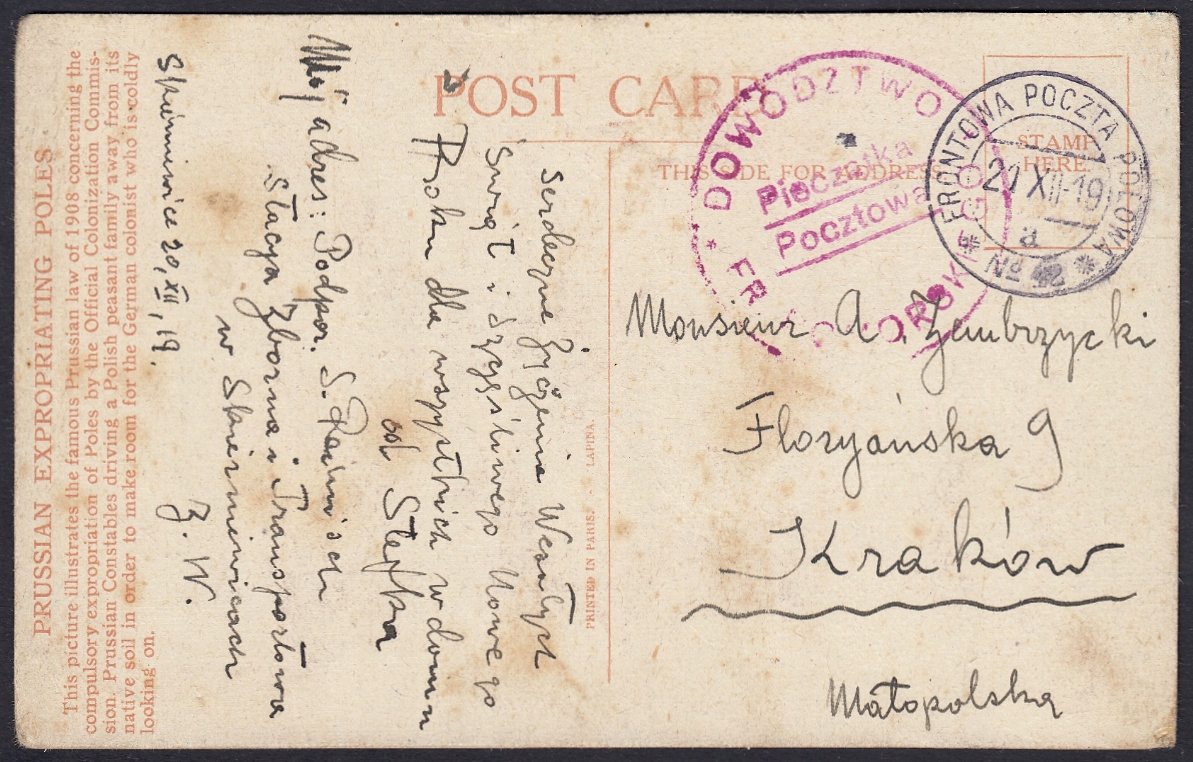 PRUSSIAN EXPROPRIATING POLES.
This picture illustrates the famous Prussian law of 1908 concerning the
compulsory expropriation of Poles by the Official Colonization Commis-
sion. Prussian Constables driving a Polish peasant family away from its
native soil in order to make room for the German colonist who is coldly
looking on.
POST CARD
THIS SIDE FOR ADDRESS
STAMP
HERE
PRINTED IN PARIS. - LAPINA.
DOWÓDZTWO
Pieczątka
Pocztowa
FRONTOWA POCZTA POLOWA
21 XII 19
a
No 2
Monsieur A. Zembrzycki
Floryańska 9
Kraków
Małopolska
Serdeczne życzenia Wesołych
Świąt i Szczęśliwego Nowego
Roku dla wszystkich w domu
od Stefka
Mój adres: Podpor. S.
Stacya Zborna i Transportowa
w Skierniewicach
Z. W.
Skierniewice 20, XII, 19.